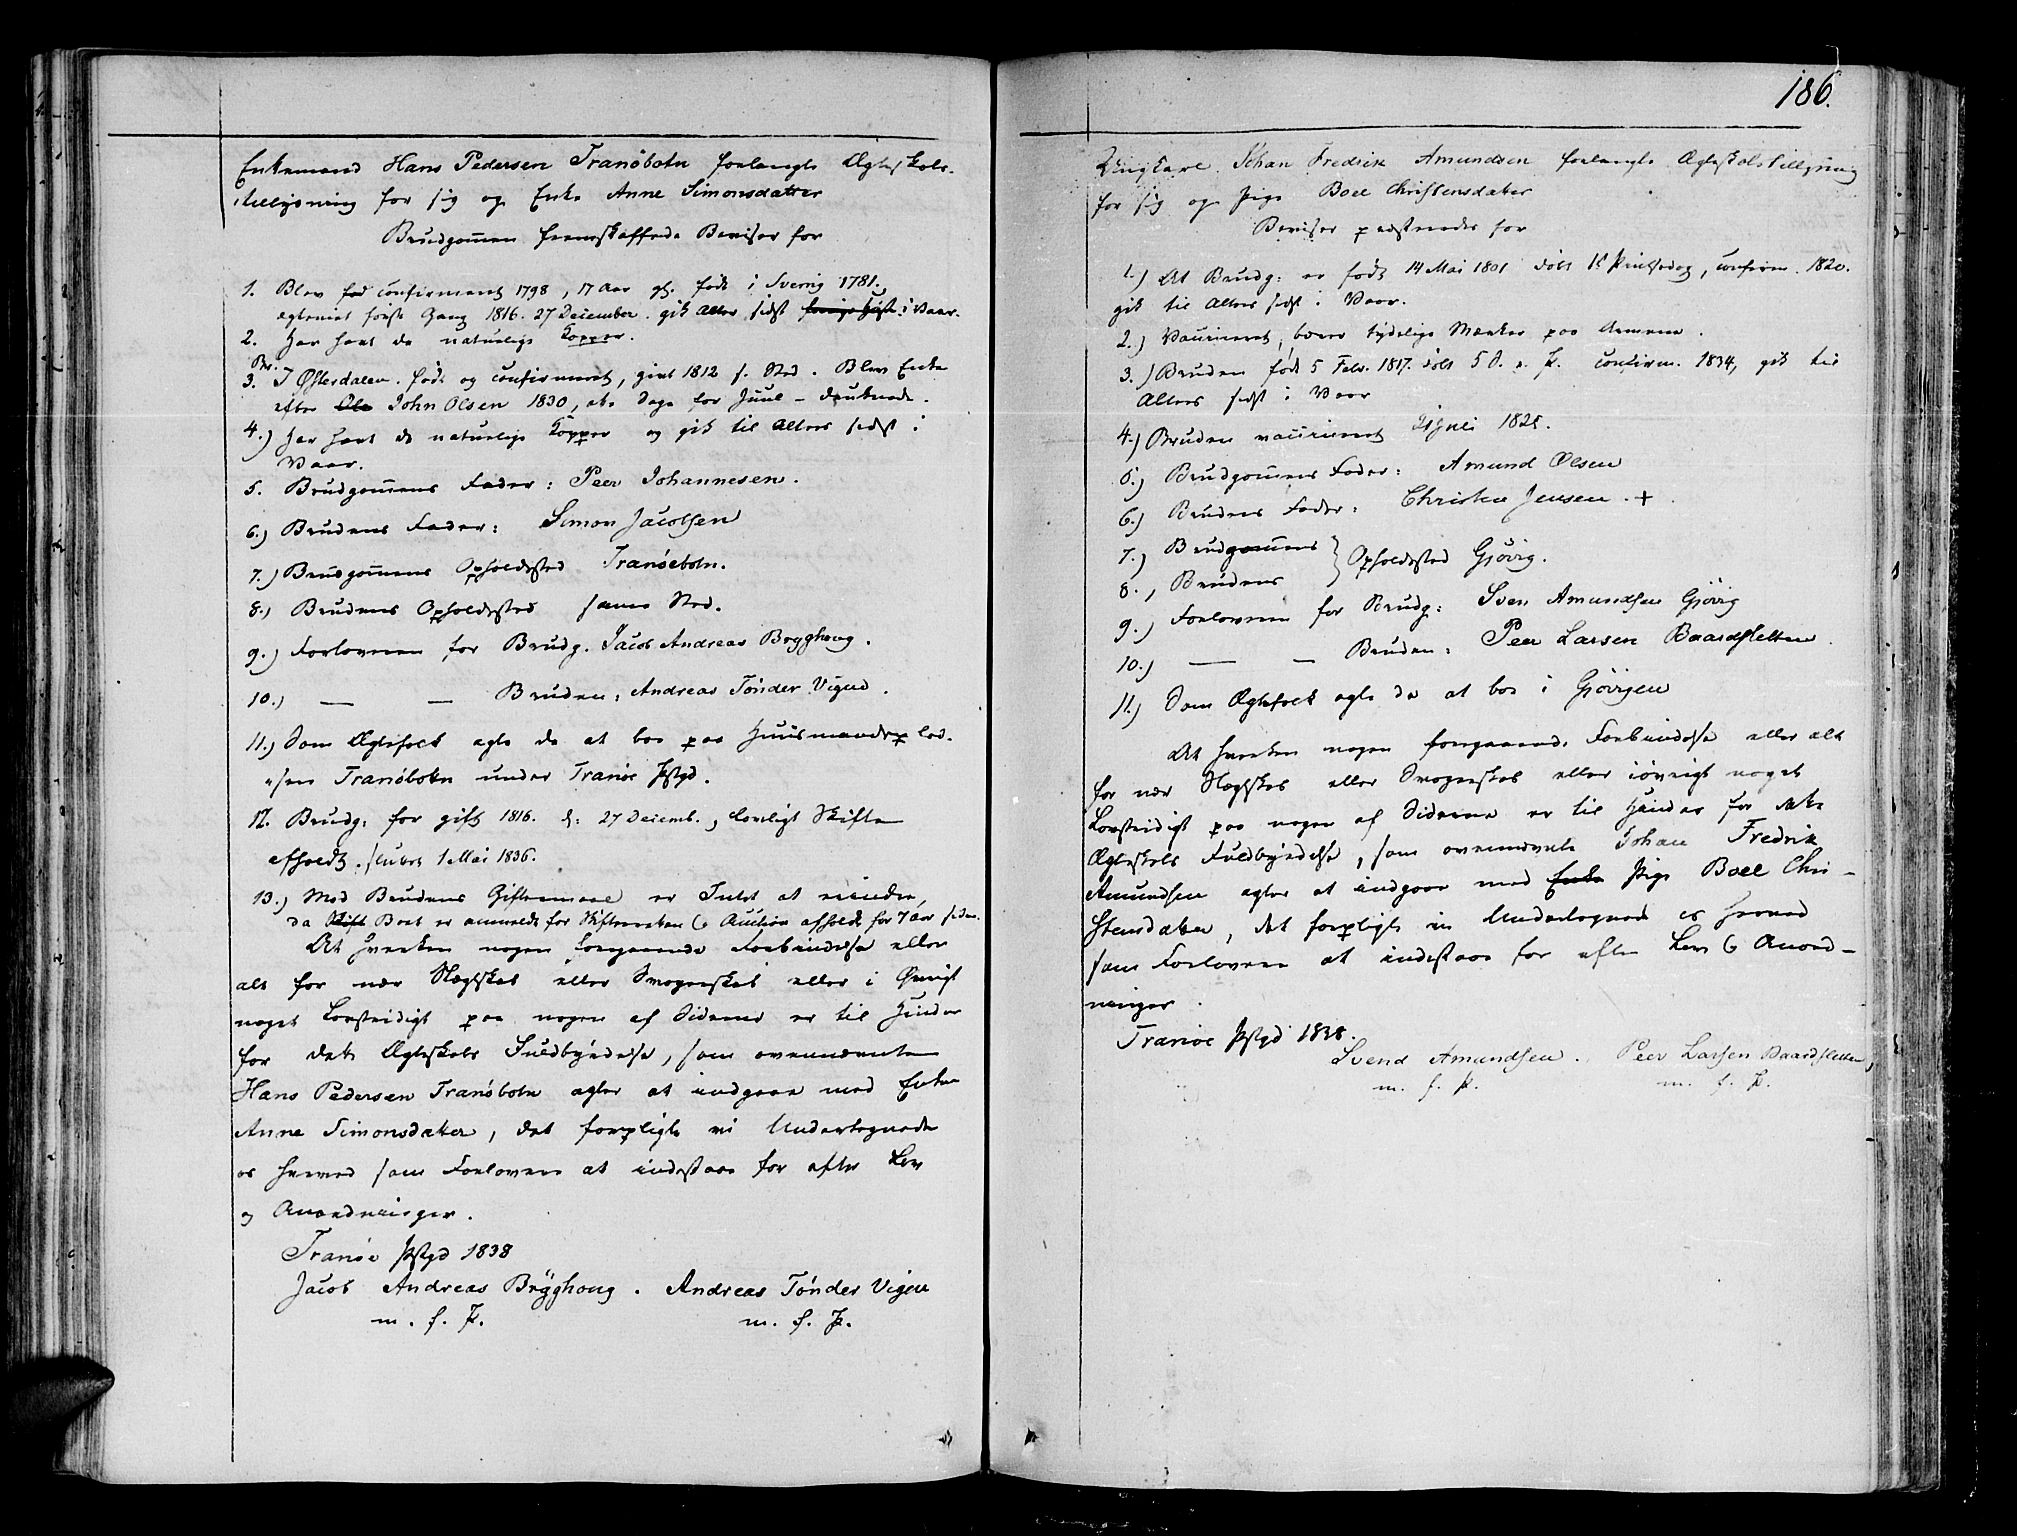 Enkemand Hans Pedersen Tranöbotn forlangte Ægteskabs-
tillysning for sig og Enke Anne Simonsdatter
Brudgom̅en fremskaffede Beviser for
1. Blev fød confirmeret 1798, 17 Aar gl. født i Sverig 1781.
egteviet første Gang 1816. 27 December. gik Alters sidst forrige Høst i Vaar.
2. Har havt de naturlige Kopper.
Br.
3. I Østerdalen. født og confirmeret, givt 1812 s. Sted. Blev Enke
efter Ole John Olsen 1830, otte Dage for Juul - druknede.
4.) Har havt de naturlige Kopper og gik til Alters sidst i
Vaar.
5. Brudgom̅ens Fader: Peer Johannesen.
6.) Brudens Fader: Simon Jacobsen
7.) Brudgom̅ens Opholdssted Tranöebotn.
8.) Brudens Opholdssted samme Sted.
9.) Forlovere for Brudg. Jacob Andreas Brygghoug.
10.) — — Bruden: Andreas Tönder Vigen.
11.) Som Ægtefolk agte de at boe paa Huusmandsplad-
sen Tranöbotn under Tranöe Pstgd.
12. Brudg. før gift 1816. d: 27 Decemb., lovligt Skifte
afholdt. sluttet 1 Mai 1836.
13.) Med Brudens Giftermaal er Intet at erindre,
da Skift Boet er anmeldt for Skifteretten & Auction afholdt for 7 Aar siden.
At hverken nogen foregaaende Forbindelse eller
alt for nær Slægtskab eller Svogerskab eller i Øvrigt
noget Lovstridigt paa nogen af Siderne er til Hinder
for dette Ægteskabs Fuldbyrdelse, som ovennævnte
Hans Pedersen Tranöbotn agter at indgaae med Enke
Anne Simonsdatter, det forpligte vi Undertegnede
os herved som Forlovere at indestaae for efter Lov
og Anordninger.
Tranöe Pstgd 1838
Jacob Andreas Brÿghoug. Andreas Tönder Vigen
m. f. P. m. f. P.
186.
Ungkarl Johan Fredrik Amundsen forlangte Ægteskabstillysning
for sig og Pige Boel Christensdatter
Beviser præsteredes for
1.) At Brudg: er født 14 Mai 1801 døbt 1ste Pintsedag, confirm. 1820.
gik til Alters sidst i Vaar.
2.) Vaccineret, bærer tydelige Mærker paa Armene.
3.) Bruden født 5 Febr. 1817. døbt 5 S. e. P. confirm. 1834, gik til
Alters sidst i Vaar
4.) Bruden vaccineret Juni 1825.
5.) Brudgom̅ens Fader: Amund Olsen
6.) Brudens Fader: Christen Jensen. +
7.) Brudgom̅ens } Opholdssted Gjövig.
8.) Brudens
9.) Forlovere for Brudg: Sven Amundsen Gjövig
10.) — — Bruden: Peer Larsen Baardsletten.
11.) Som Ægtefolk agte de at boe i Gjövigen
At hverken nogen foregaaende Forbindelse eller alt
for nær Slægtskab eller Svogerskab eller iøvrigt noget
Lovstridigt paa nogen af Siderne er til Hinder for dette
Ægteskabs Fuldbyrdelse, som ovennævnte Johan Fredrik
Amundsen agter at indgaae med Enke Pige Boel Chri-
stensdatter, det forpligte vi Undertegnede os herved
som Forlovere at indestaae for efter Lov & Anord-
ninger.
Tranöe Pstgd 1838.
Svend Amundsen. Peer Larsen Baardsletten,
m. f. P. m. f. P.